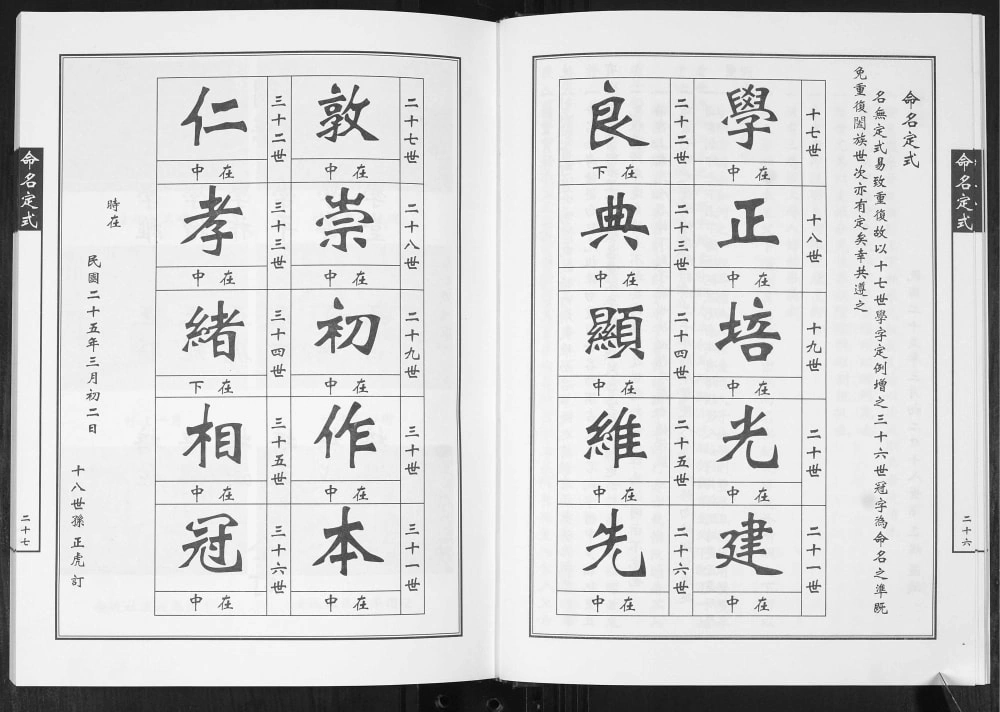 命名定式
二十六
命名定式
名無定式易致重復故以十七世學字定例增之三十六世冠字為命名之準既
免重復闔族世次亦有定矣幸共遵之
十七世
學
在中
十八世
正
在中
十九世
培
在中
二十世
光
在中
二十一世
建
在中
二十二世
良
在下
二十三世
典
在中
二十四世
顯
在中
二十五世
維
在中
二十六世
先
在中
二十七世
敦
在中
二十八世
崇
在中
二十九世
初
在中
三十世
作
在中
三十一世
本
在中
三十二世
仁
在中
三十三世
孝
在中
三十四世
緒
在下
三十五世
相
在中
三十六世
冠
在中
時在
民國二十五年三月初二日
十八世孫 正虎 訂
命名定式
二十七